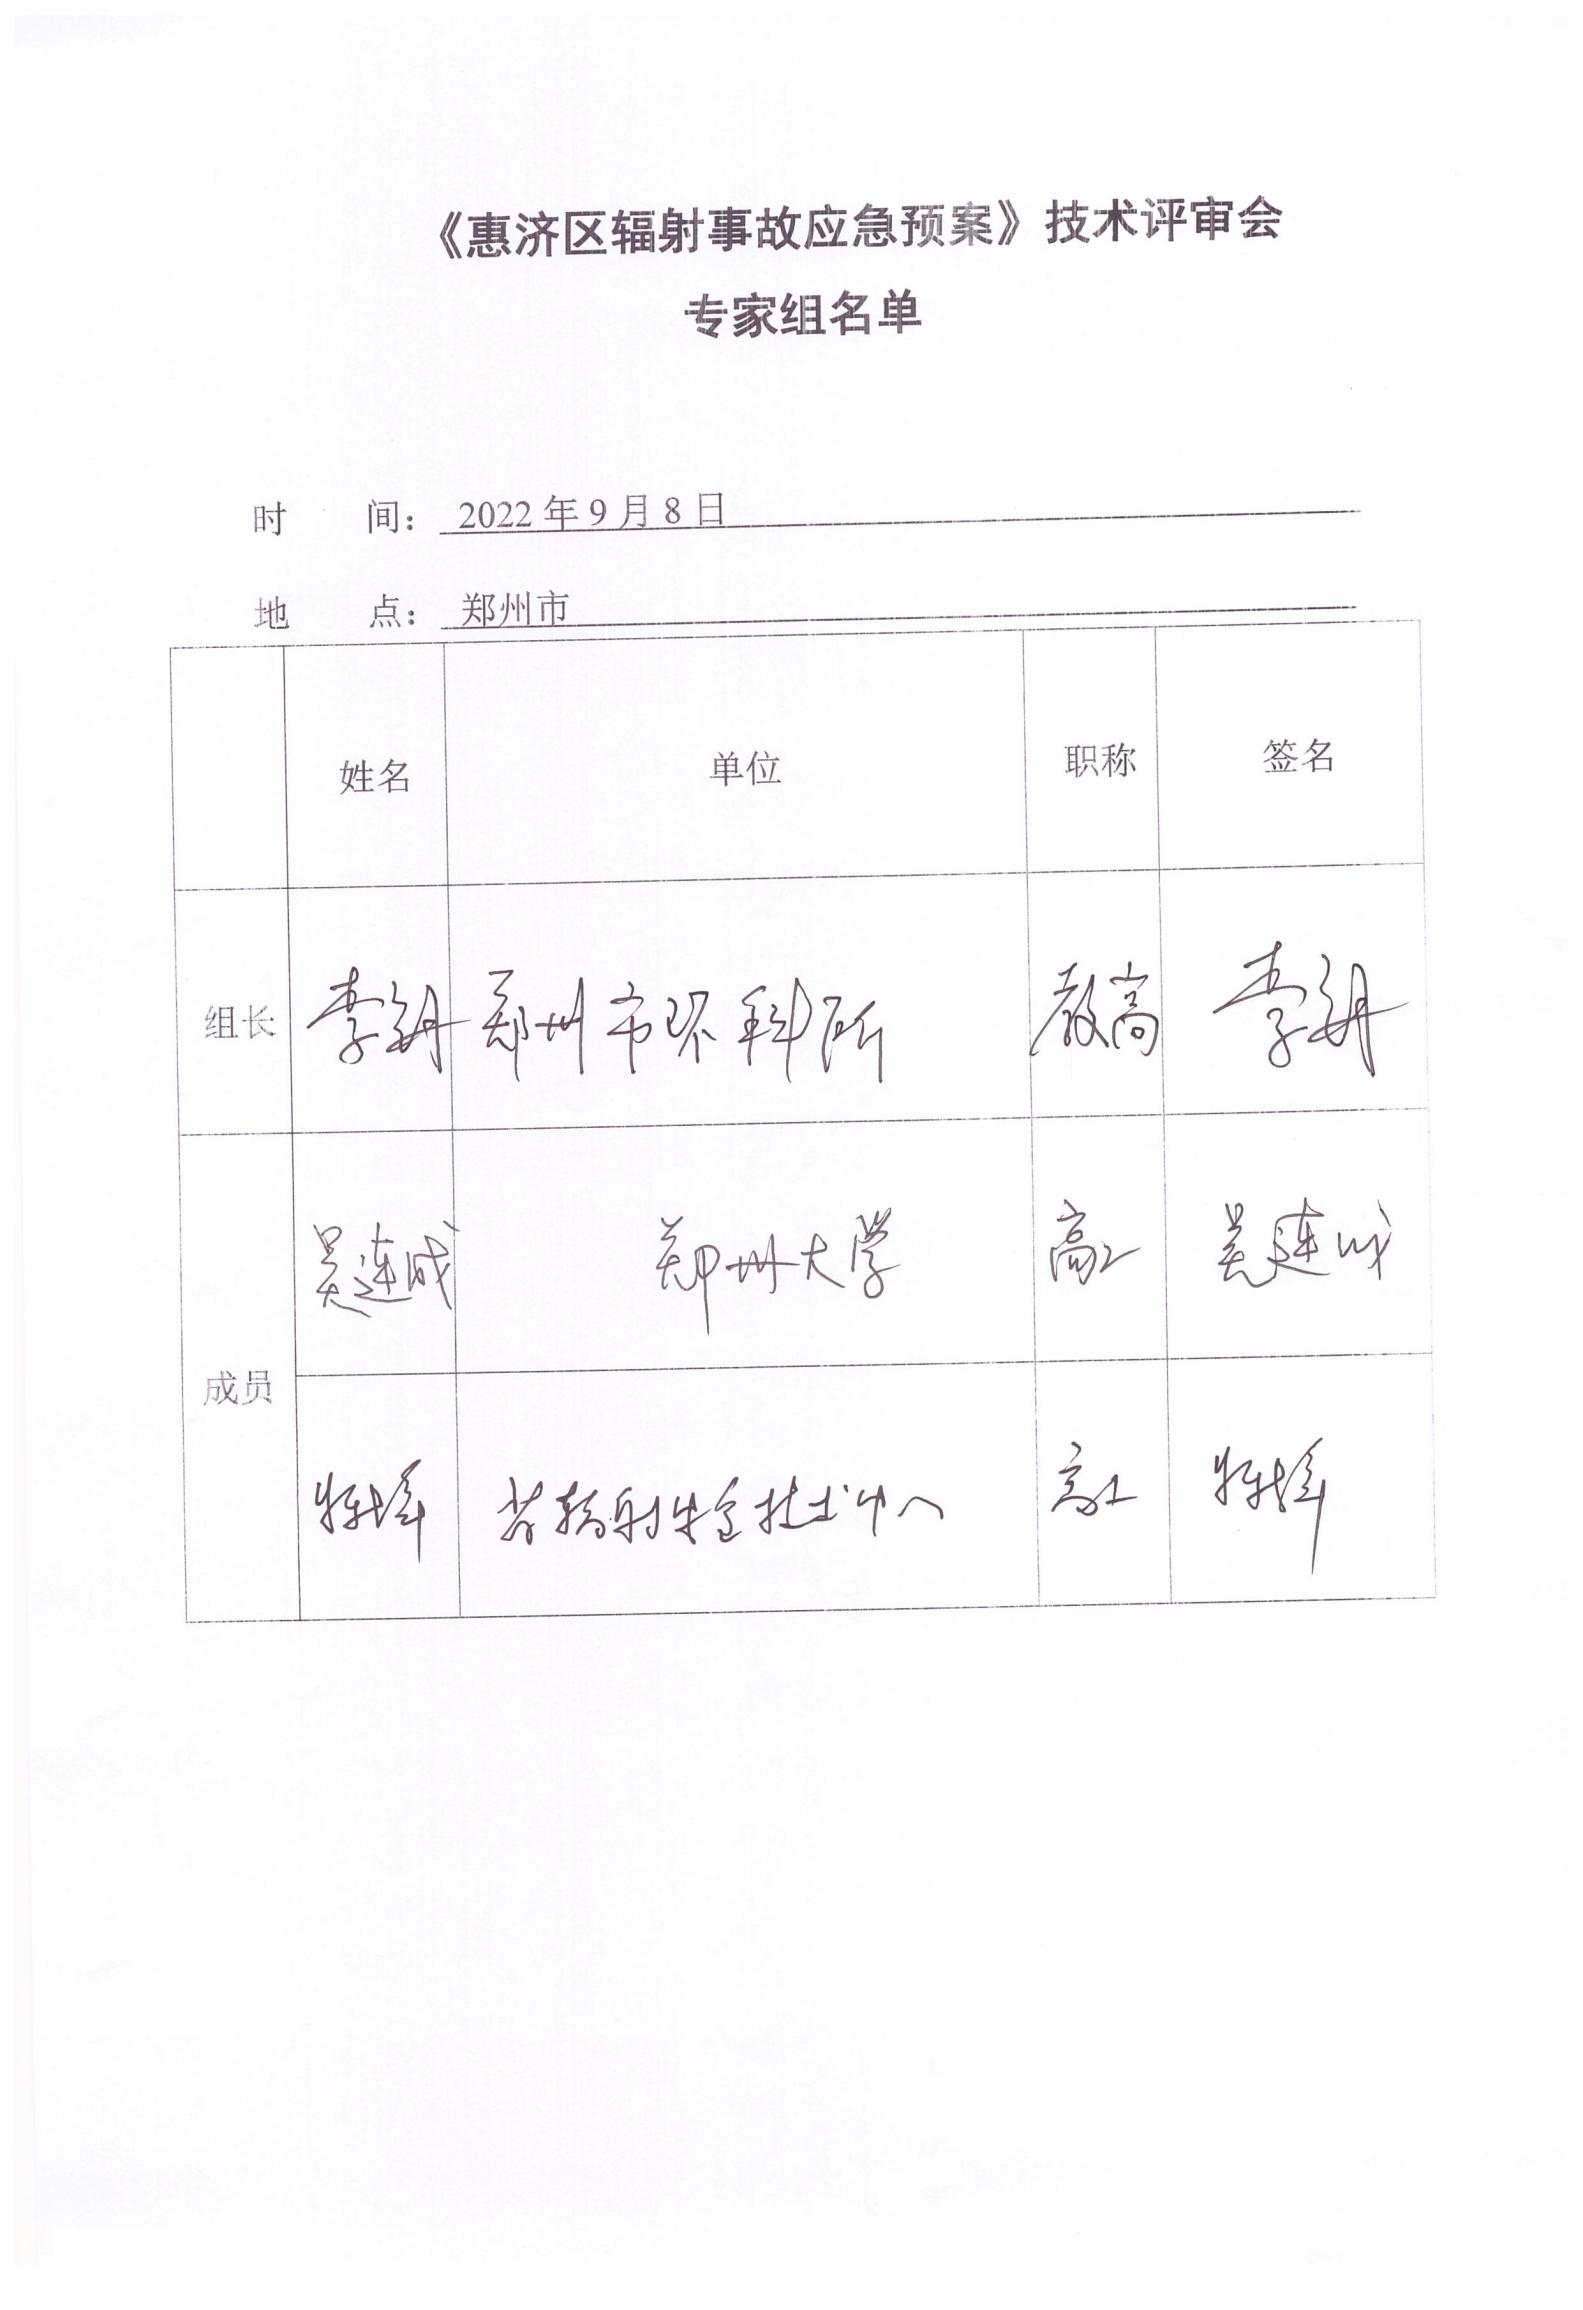 《惠济区辐射事故应急预案》技术评审会
专家组名单
时 间：2022年9月8日
地 点：郑州市
姓名 单位 职称 签名
组长 李 郑州市环科所 教高 李
吴连成 郑州大学 高工 吴连成
成员
辐射安全技术中心 高工